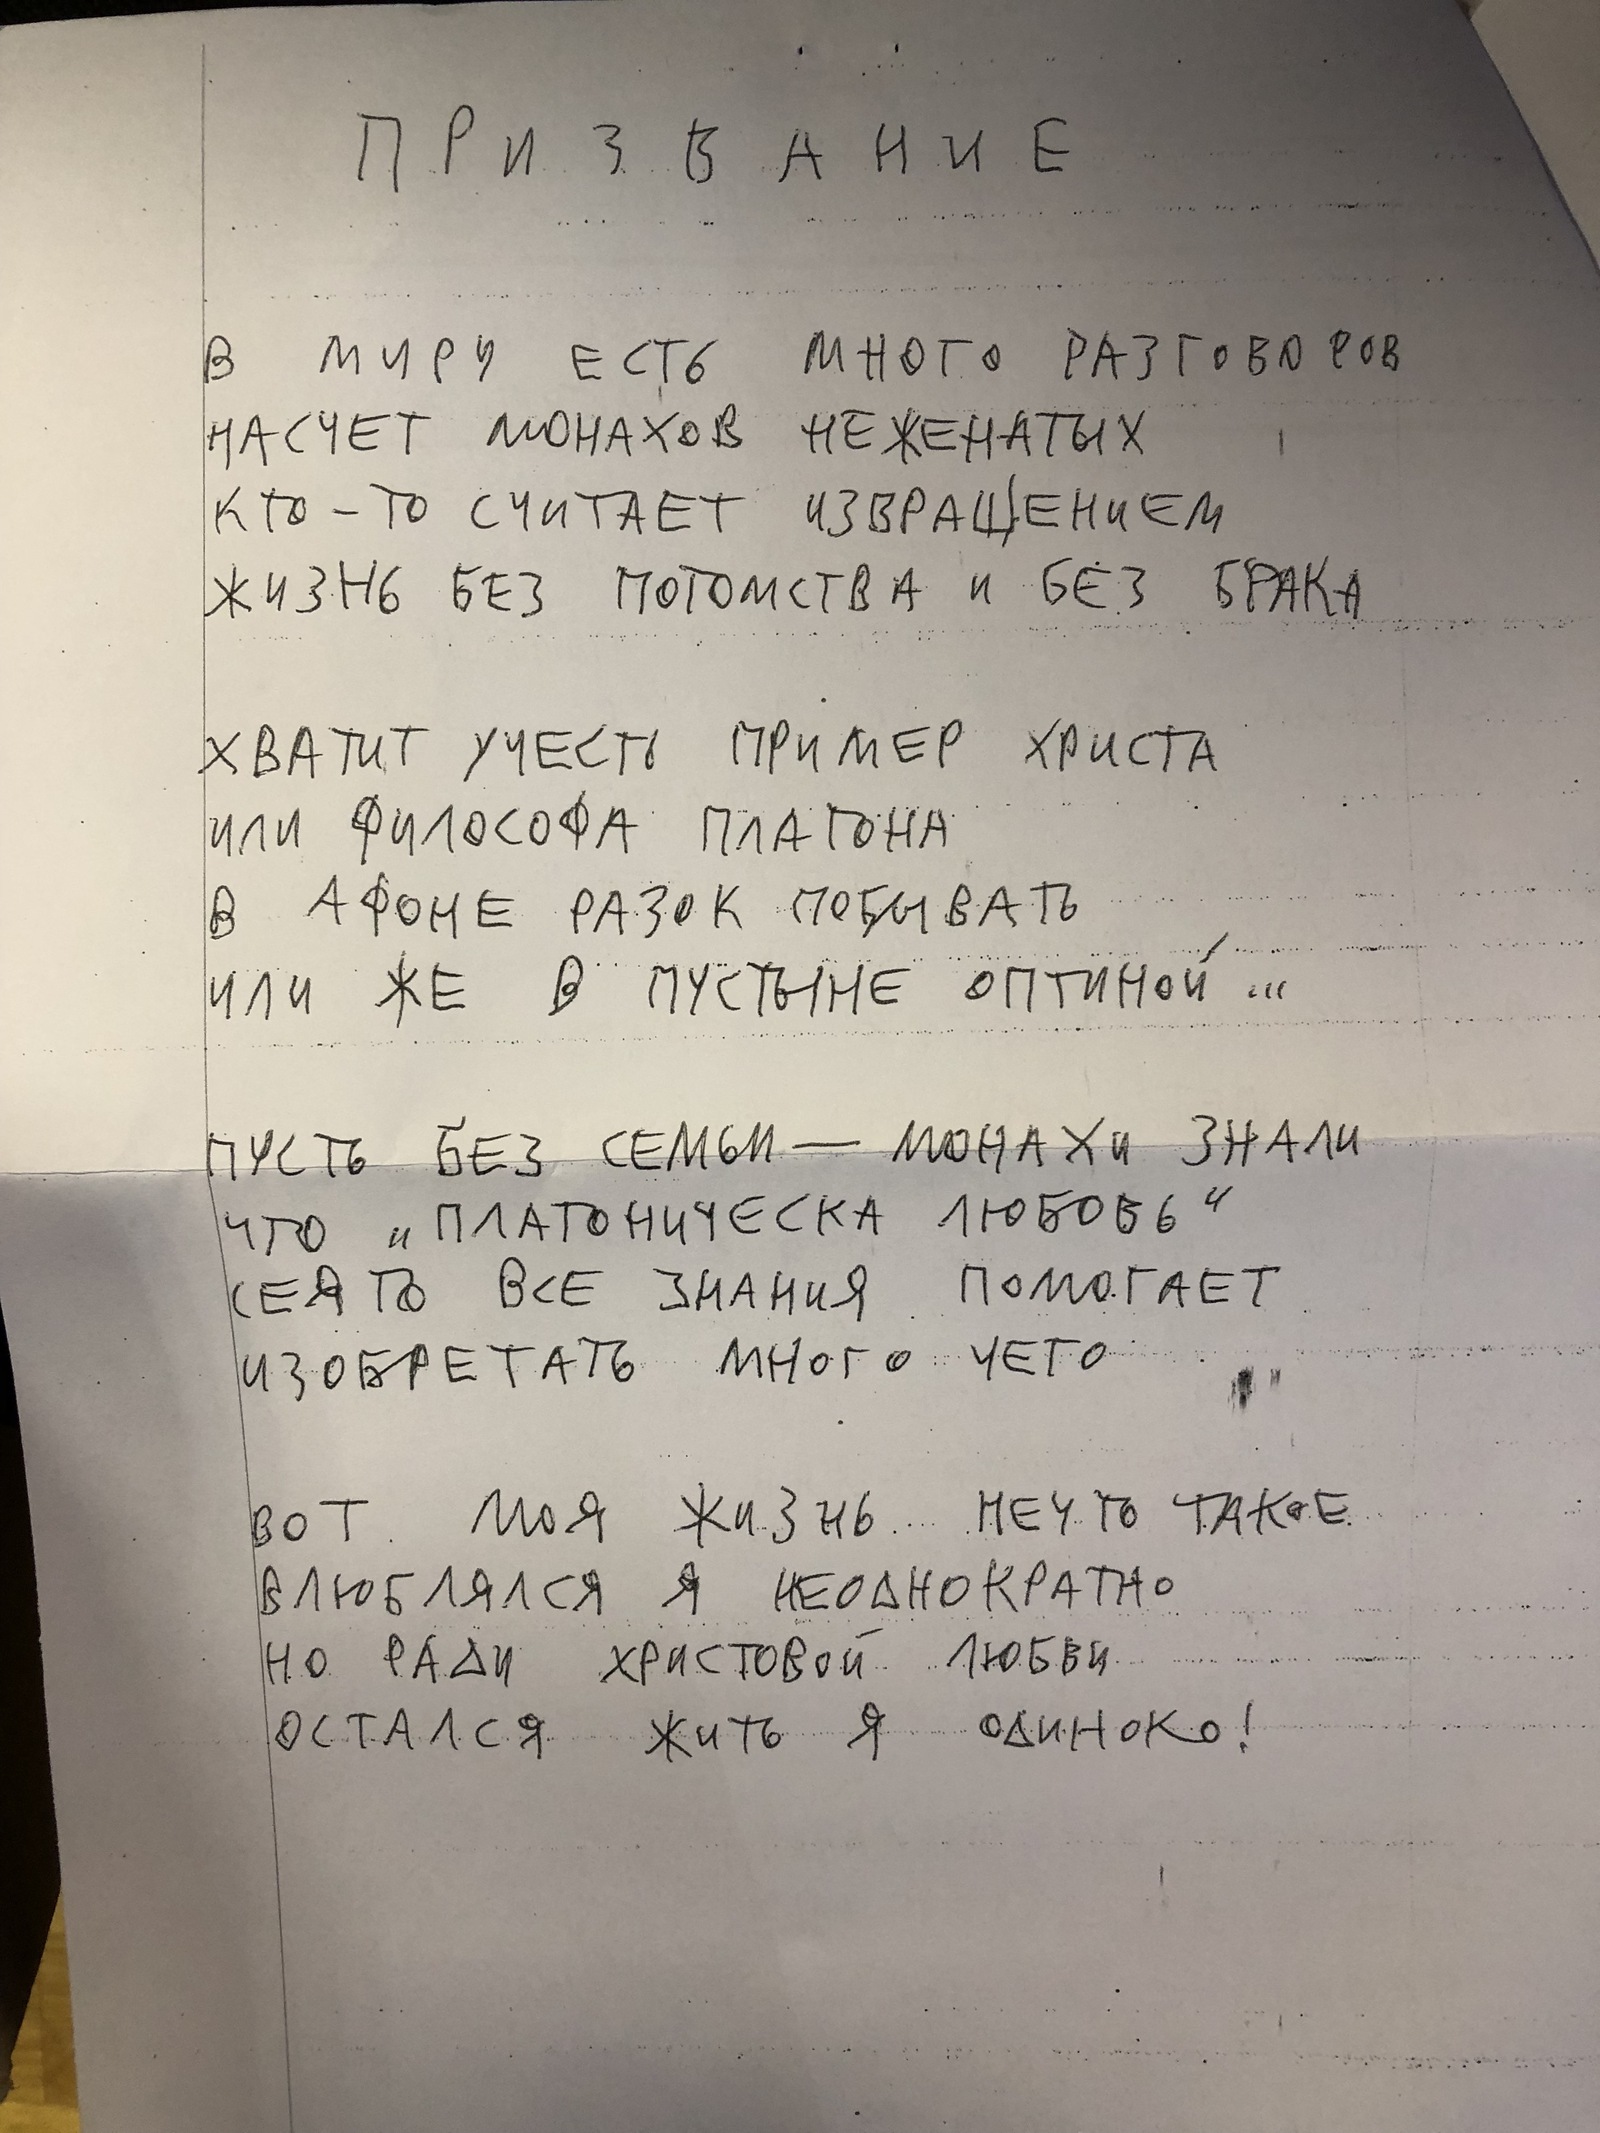 ПРИЗВАНИЕ
В МИРУ ЕСТЬ МНОГО РАЗГОВОРОВ
НАСЧЕТ МОНАХОВ НЕЖЕНАТЫХ
КТО-ТО СЧИТАЕТ ИЗВРАЩЕНИЕМ
ЖИЗНЬ БЕЗ ПОТОМСТВА И БЕЗ БРАКА
ХВАТИТ УЧЕСТЬ ПРИМЕР ХРИСТА
ИЛИ ФИЛОСОФА ПЛАТОНА
В АФОНЕ РАЗОК ПОБЫВАТЬ
ИЛИ ЖЕ В ПУСТЫНЕ ОПТИНОЙ...
ПУСТЬ БЕЗ СЕМЬИ — МОНАХИ ЗНАЛИ
ЧТО „ПЛАТОНИЧЕСКА ЛЮБОВЬ“
СЕЯТЬ ВСЕ ЗНАНИЯ ПОМОГАЕТ
ИЗОБРЕТАТЬ МНОГО ЧЕГО
ВОТ МОЯ ЖИЗНЬ НЕЧТО ТАКОЕ
ВЛЮБЛЯЛСЯ Я НЕОДНОКРАТНО
НО РАДИ ХРИСТОВОЙ ЛЮБВИ
ОСТАЛСЯ ЖИТЬ Я ОДИНОКО!